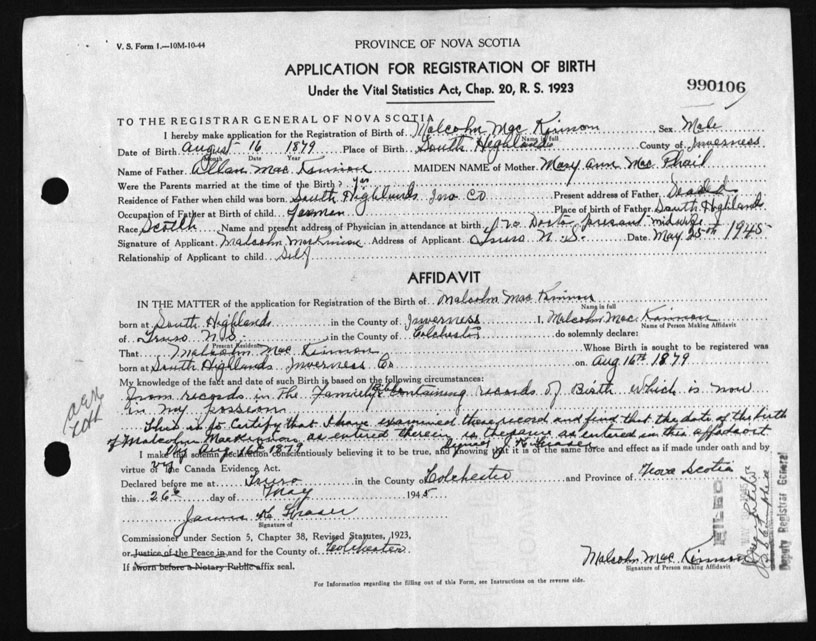 V. S. Form 1.—10M-10-44
PROVINCE OF NOVA SCOTIA
APPLICATION FOR REGISTRATION OF BIRTH
Under the Vital Statistics Act, Chap. 20, R. S. 1923
990106
TO THE REGISTRAR GENERAL OF NOVA SCOTIA
I hereby make application for the Registration of Birth of Malcolm Mac Kinnon Sex Male
Name in full
Date of Birth August 16 1879 Place of Birth South Highlands County of Inverness
Month Date Year
Name of Father Allan Mac Kinnon MAIDEN NAME of Mother Mary Ann Mac Phail
Were the Parents married at the time of the Birth? yes
Residence of Father when child was born South Highlands Inv Co Present address of Father
Occupation of Father at Birth of child Place of birth of Father South Highlands
Race Scotch Name and present address of Physician in attendance at birth no Doctor present midwife
Signature of Applicant Malcolm MacKinnon Address of Applicant Truro N. S. Date May 25th 1945
Relationship of Applicant to child Self
AFFIDAVIT
IN THE MATTER of the application for Registration of the Birth of Malcolm Mac Kinnon
Name in full
born at South Highlands in the County of Inverness I, Malcolm Mac Kinnon
Name of Person Making Affidavit
of Truro N.S. in the County of Colchester do solemnly declare:
Present Residence
That Malcolm Mac Kinnon Whose Birth is sought to be registered was
born at South Highlands Inverness Co on Aug 16th 1879
My knowledge of the fact and date of such Birth is based on the following circumstances:
From records in The Family Bible Containing records of Birth which is now
in my
This is to Certify that I have examined these record and find that the date of the birth
of Malcolm MacKinnon as entered therein is the same as entered in this affidavit
Aug 16 1879 J. K. Fraser
I make this solemn declaration conscientiously believing it to be true, and knowing that it is of the same force and effect as if made under oath and by
virtue of the Canada Evidence Act.
Declared before me at Truro in the County of Colchester and Province of Nova Scotia
this 26 day of May 1945
James K Fraser
Signature of
Commissioner under Section 5, Chapter 38, Revised Statutes, 1923,
or Justice of the Peace in and for the County of Colchester
If sworn before a Notary Public affix seal.
Malcolm Mac Kinnon
Signature of Person making Affidavit
For Information regarding the filling out of this Form, see Instructions on the reverse side.
FILED
Deputy Registrar General